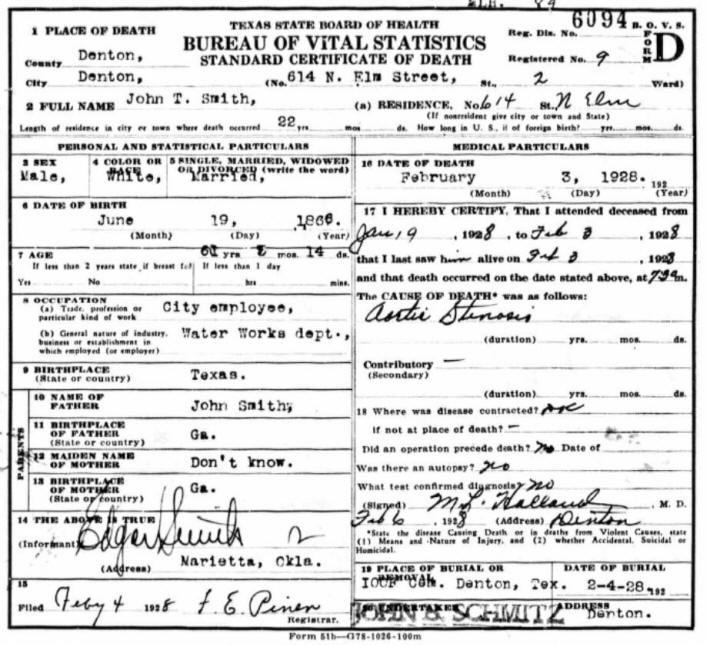 TEXAS STATE BOARD OF HEALTH
6094 B. O. V. S.
BUREAU OF VITAL STATISTICS
STANDARD CERTIFICATE OF DEATH
Reg. Dis. No.
Registered No. 9
FORM D
1 PLACE OF DEATH
County Denton,
City Denton, (No. 614 N. Elm Street, St., 2 Ward)
2 FULL NAME John T. Smith, (a) RESIDENCE, No. 614 St. N Elm
(If nonresident give city or town and State)
Length of residence in city or town where death occurred 22 yrs. mos ds. How long in U. S., if of foreign birth? yrs. mos. ds.
PERSONAL AND STATISTICAL PARTICULARS
3 SEX 4 COLOR OR RACE 5 SINGLE, MARRIED, WIDOWED OR DIVORCED (write the word)
Male, White, Married,
6 DATE OF BIRTH
June 19, 1866.
(Month) (Day) (Year)
7 AGE yrs mos. 14 ds.
If less than 2 years state if breast fed If less than 1 day
Yes No hrs mins.
8 OCCUPATION
(a) Trade, profession or particular kind of work City employee,
(b) General nature of industry, business or establishment in which employed (or employer) Water Works dept.,
9 BIRTHPLACE
(State or country) Texas.
PARENTS
10 NAME OF FATHER John Smith,
11 BIRTHPLACE OF FATHER (State or country) Ga.
12 MAIDEN NAME OF MOTHER Don't know.
13 BIRTHPLACE OF MOTHER (State or country) Ga.
14 THE ABOVE IS TRUE
(Informant) Edgar Smith
(Address) Marietta, Okla.
15
Filed Feby 4 1928
Registrar.
MEDICAL PARTICULARS
16 DATE OF DEATH
February 3, 1928. 192
(Month) (Day) (Year)
17 I HEREBY CERTIFY, That I attended deceased from
Jan 19, 1928, to Feb 3, 1928
that I last saw him alive on Feb 3, 1928
and that death occurred on the date stated above, at m.
The CAUSE OF DEATH* was as follows:
Aortic Stenosis
(duration) yrs. mos. ds.
Contributory —
(Secondary)
(duration) yrs. mos. ds.
18 Where was disease contracted?
if not at place of death? —
Did an operation precede death? No Date of
Was there an autopsy? no
What test confirmed diagnosis? no
(Signed) M.L. Holland, M. D.
Feb 6, 1928 (Address) Denton
*State the disease Causing Death or in deaths from Violent Causes, state
(1) Means and Nature of Injury, and (2) whether Accidental, Suicidal or
Homicidal.
19 PLACE OF BURIAL OR REMOVAL DATE OF BURIAL
IOOF Cem. Denton, Tex. 2-4-28. 192
20 UNDERTAKER ADDRESS
JOHN B. SCHMITZ Denton.
Form 51b—G78-1026-100m